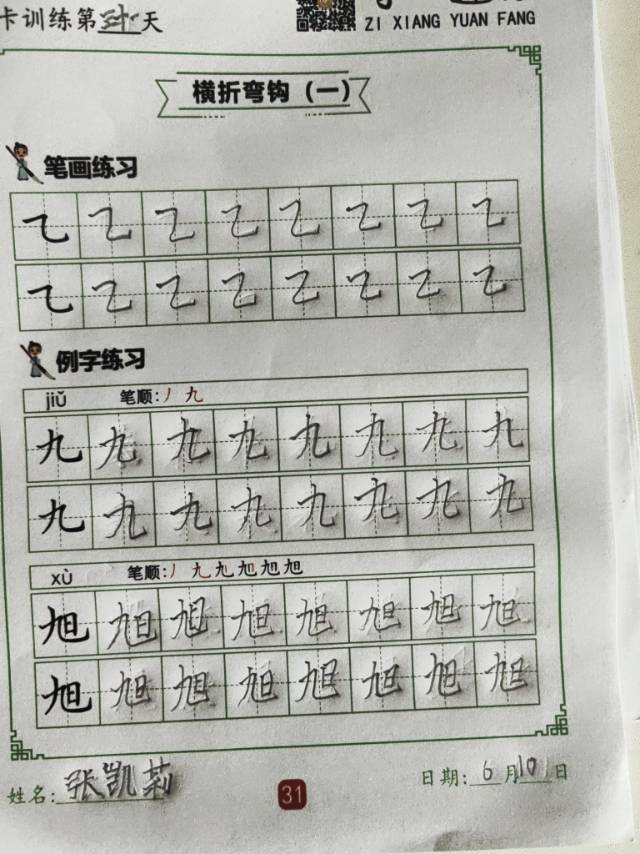 卡训练第卅一天
ZI XIANG YUAN FANG
横折弯钩（一）
笔画练习
乙 乙 乙 乙 乙 乙 乙 乙
乙 乙 乙 乙 乙 乙 乙 乙
例字练习
jiǔ 笔顺：丿 九
九 九 九 九 九 九 九 九
九 九 九 九 九 九 九 九
xù 笔顺：丿 九 九 旭 旭 旭
旭 旭 旭 旭 旭 旭 旭 旭
旭 旭 旭 旭 旭 旭 旭 旭
姓名：张凯莉 31 日期：6月10日